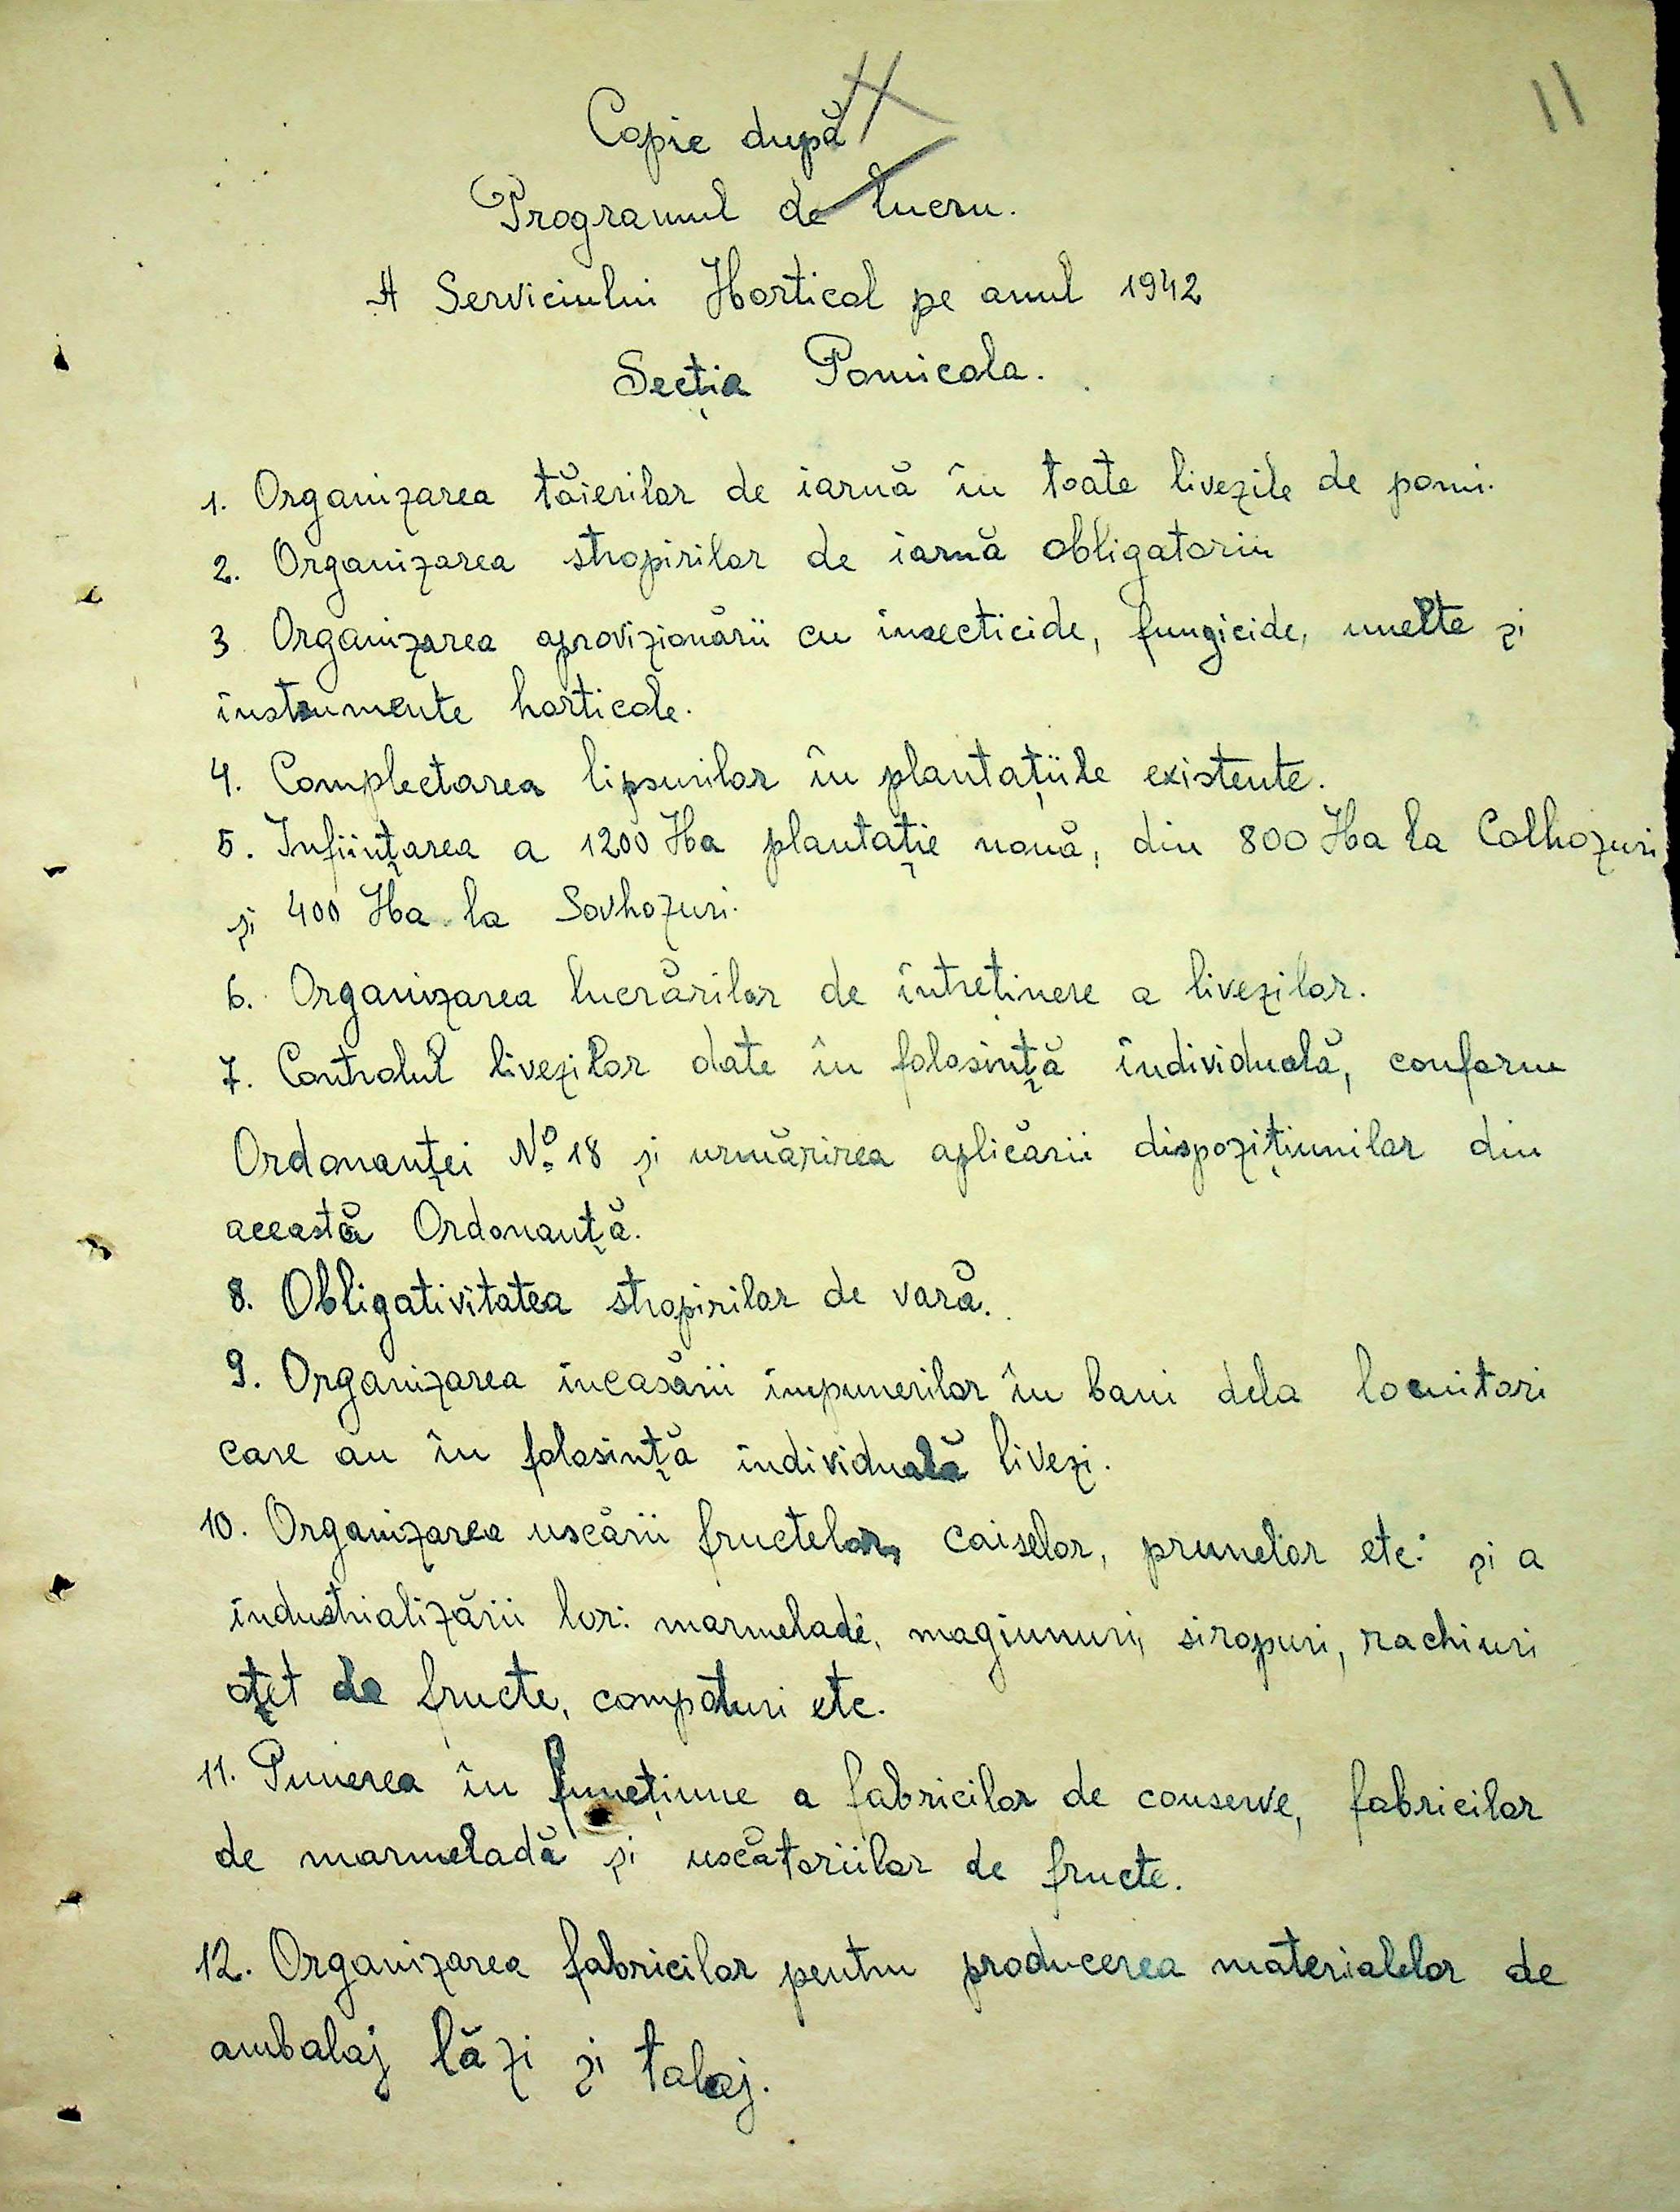 11
Copie după
Programul de lucru.
A Serviciului Horticol pe anul 1942
Secția Pomicola.
1. Organizarea tăierilor de iarnă în toate livezile de pomi.
2. Organizarea stropirilor de iarnă obligatoriu
3 Organizarea aprovizionării cu insecticide, fungicide, unelte și
instrumente horticole.
4. Complectarea lipsurilor în plantațiile existente.
5. Inființarea a 1200 Ha plantație nouă, din 800 Ha la Colhozuri
și 400 Ha la Sovhozuri.
6. Organizarea lucrărilor de întreținere a livezilor.
7. Controlul livezilor date în folosință individuală, conform
Ordonanței No 18 și urmărirea aplicării dispozițiunilor din
această Ordonanță.
8. Obligativitatea stropirilor de vară.
9. Organizarea incasării impunerilor în bani dela locuitori
care au în folosință individuală livezi.
10. Organizarea uscării fructelor, caiselor, prunelor etc. și a
industrializării lor: marmelade, magiunuri, siropuri, rachiuri
oțet de fructe, compoturi etc.
11. Punerea în funcțiune a fabricilor de conserve, fabricilor
de marmeladă și uscătoriilor de fructe.
12. Organizarea fabricilor pentru producerea materialelor de
ambalaj lăzi și talaj.